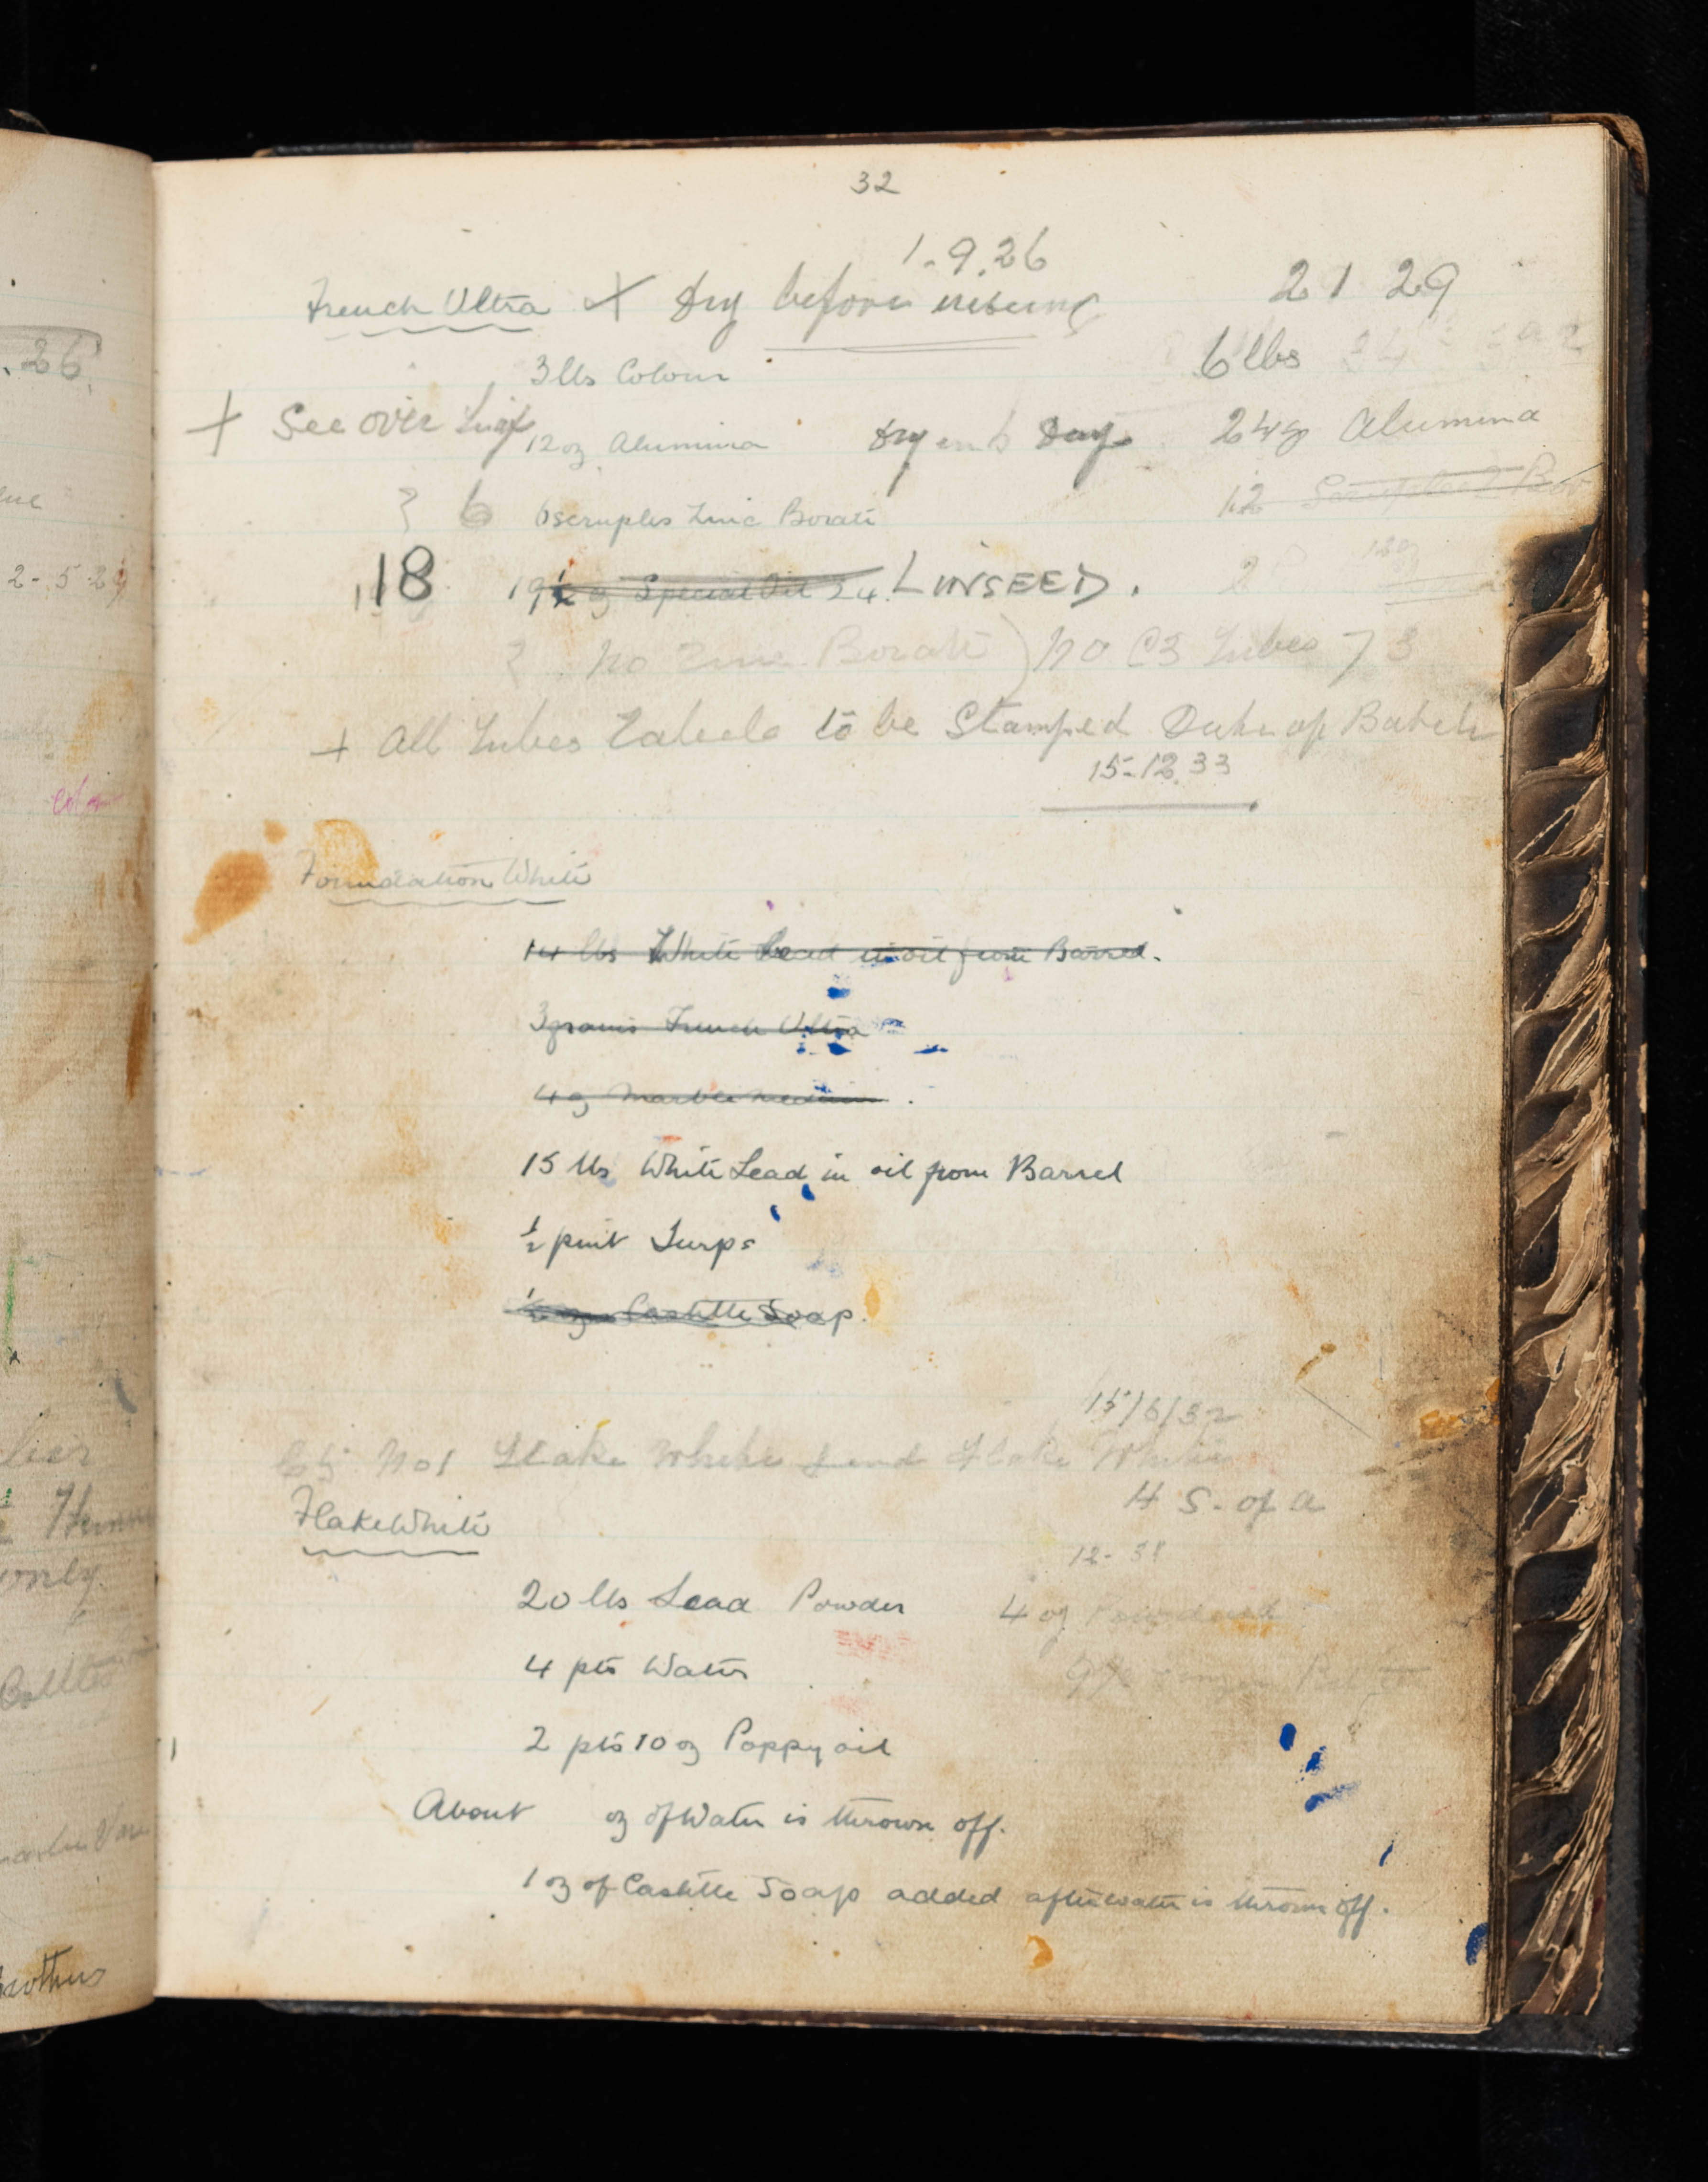 32
1.9.26
French Ultra + Dry before using
21 29
3 lbs Colour
6 lbs
+ See over Leaf
12 oz Alumina
Dry in 6 Days
24 oz Alumina
? 6
6 scruples Zinc Borate
12 Scruples Z Bor
18
19½ oz Special Oil 24 LINSEED.
? No Zinc Borate) No C3 Tubes 73
+ All Tubes Labels to be Stamped Date of Batch
15-12.33
Foundation White
14 lbs White Lead in oil from Barrel.
3 grains French Ultra
4 oz Marble Medium.
15 lbs White Lead in oil from Barrel
½ pint Turps
Castille Soap.
15/6/32
No 1 Flake White and Flake White
4 S. of A
Flake White
12-38
20 lbs Lead Powder
4 oz
4 pts Water
2 pts 10 oz Poppy oil
About oz of Water is thrown off.
1 oz of Castille Soap added after water is thrown off.
.26.
2-5-29
only.